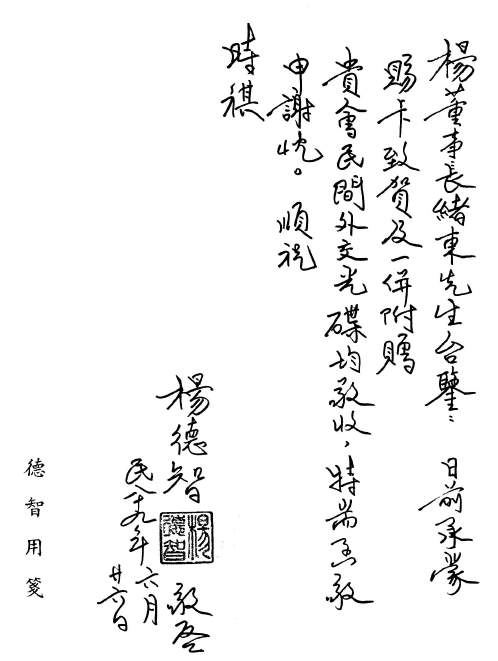 楊董事長緒東先生台鑒： 日前承蒙
賜卡致賀及一併附贈
貴會民間外交光碟均敬收，特耑函敬
申謝忱。 順祝
時祺
楊德智 楊德智 敬啓
民八十九年六月
廿六日
德智用箋